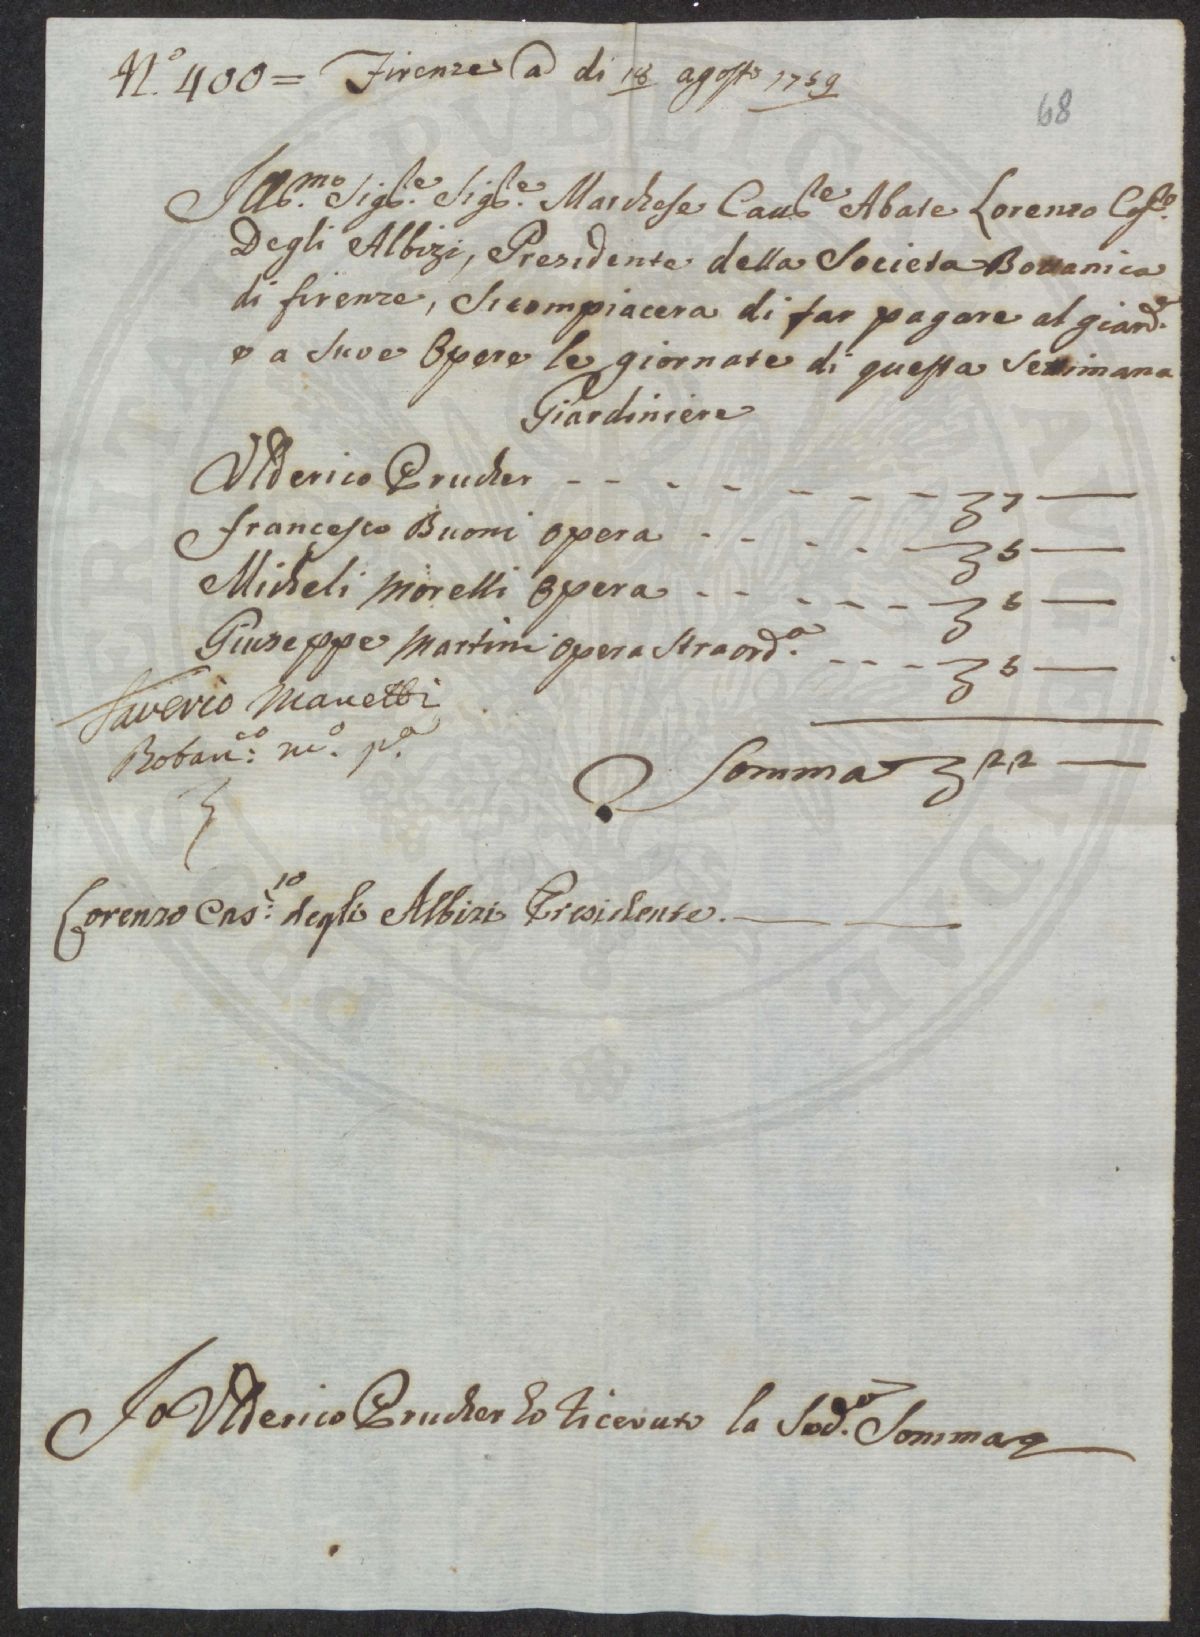 N.o 400 = Firenze a di 18 agosto 1759
68
Ill.mo Sig.re Sig.re Marchese Cav.re Abate Lorenzo Cas.o
Degli Albizi, Presidente della Societa Bottanica
di firenze, Si compiacera di far pagare al giard.e
e a Sue Opere le giornate di questa Settimana
Giardiniere
Vlderico Prucher - - - - - - - 7 —
francesco Buoni opera - - - - - 5 —
Micheli Morelli Opera - - - - - 5 —
Giuseppe Martini opera Straord.a - - - - 5 —
Saverio Manetti
Botan.co m.o p.a
Somma 22 —
Lorenzo Cas.io degli Albizi Presidente.
Io Vlderico Prucher ho ricevuto la Sod.a Somma
PUBLIC